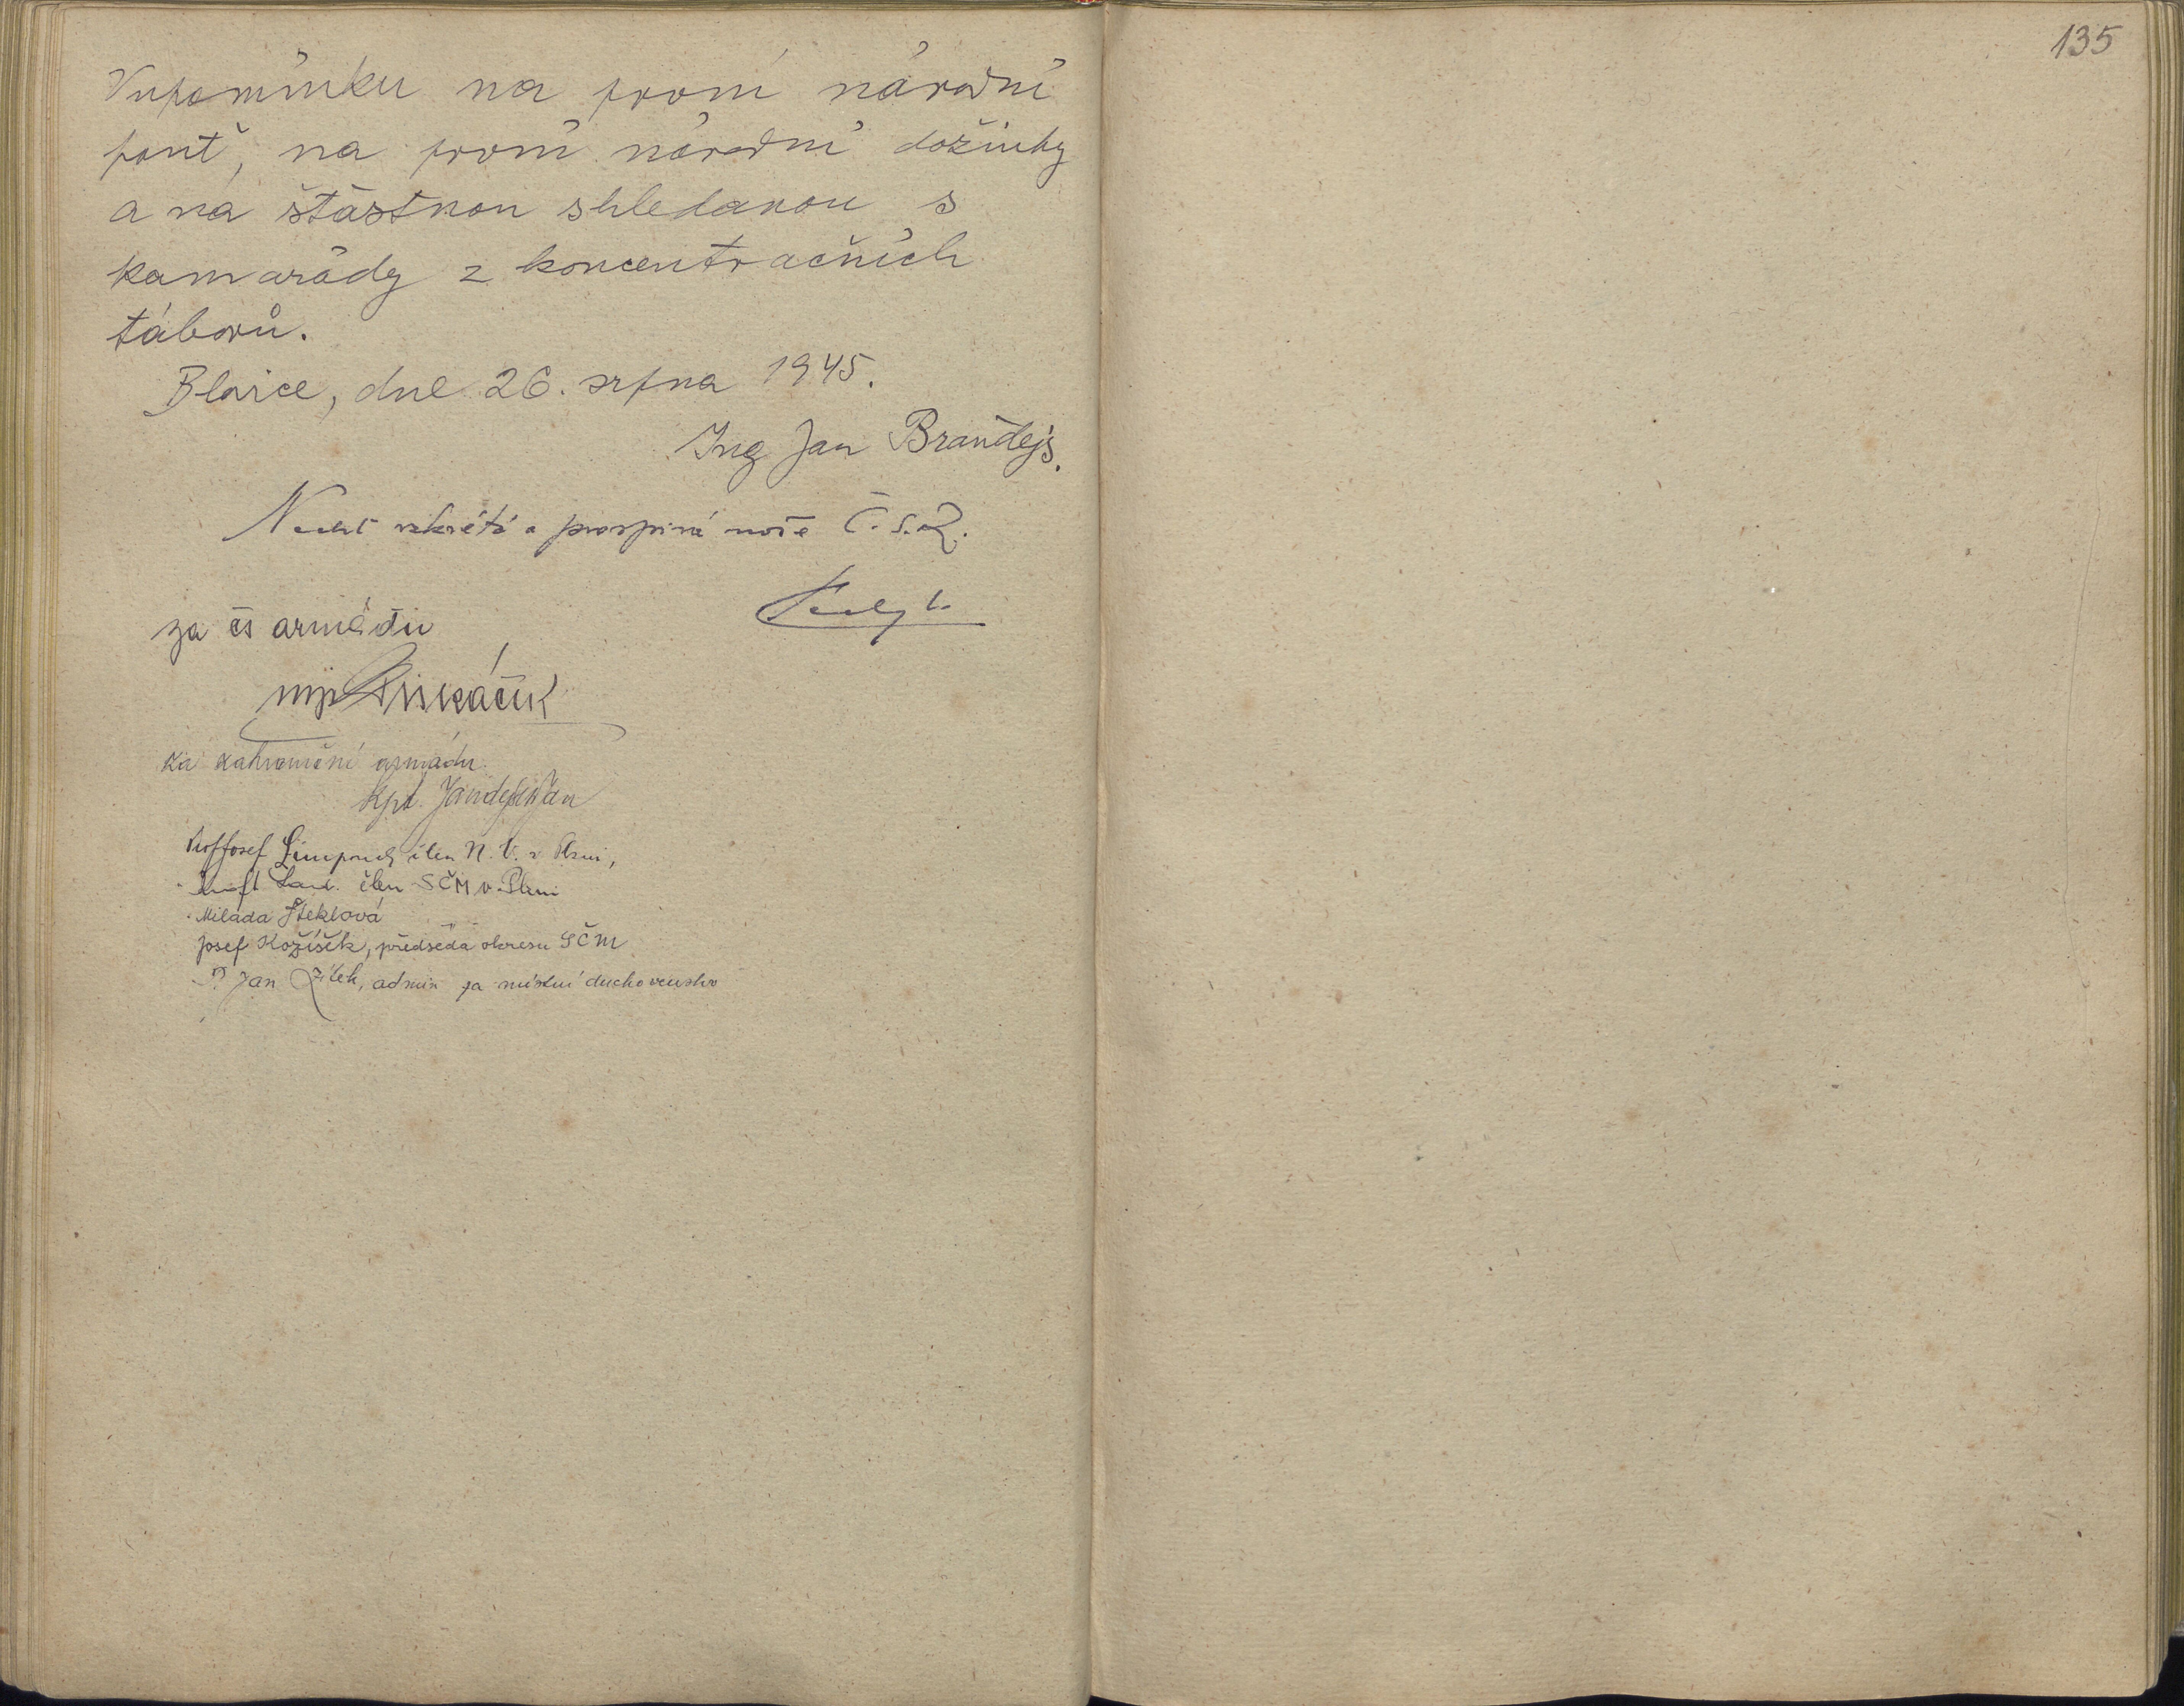 135
Vzpomínku na první národní
pouť, na první národní dožínky
a na šťastnou shledanou s
kamarády z koncentračních
táborů.
Blaice, dne 26. srpna 1945.
Ing Jan Brandejs.
Nechť vzkvétá a prospívá naše Č.S.R.
za čs armádu
za zahraniční armádu
kpt. Jan
Josef člen N. V. v Plzni,
člen SČM v Plzni
Milada Šteklová
Josef Kožíšek, předseda okresu SČM
P. Jan Žilek, admin za místní duchovenstvo